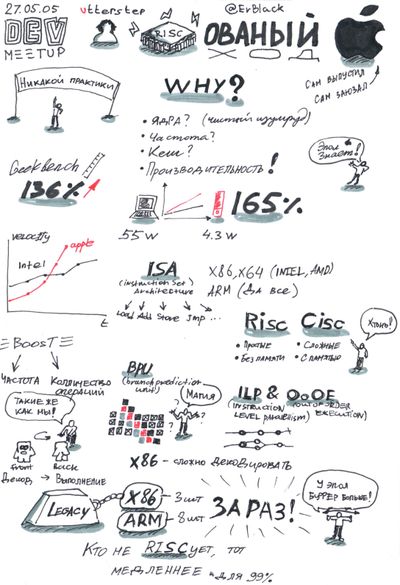 27.05.05
utterstep
@ErBlack
DEV
MEETUP
RISC
ОВАНЫЙ
САМ ВЫПУСТИЛ
САМ ЗАЮЗАЛ
НИКАКОЙ ПРАКТИКИ
WHY?
• ЯДРА? (чистый изумруд)
• Частота?
• Кеш?
• Производительность!
Эпол знает!
GeekBench
136%
165%
55 W
4.3 W
VELOCITY
apple
Intel
t
ISA
(instruction Set)
Architecture
Load Add Store Jmp ...
X86, X64 (INTEL, AMD)
ARM (Да все)
Risc
Cisc
• Простые
• Без памяти
• Сложные
• С памятью
Хтонь!
BOOST
ЧАСТОТА
КОЛЛИЧЕСТВО ОПЕРАЦИЙ
BPU
(branch prediction unit)
МАГИЯ
ILP & OoOE
(INSTRUCTION LEVEL PARALELISM)
(OUT OF ORDER EXECUTION)
ТАКИЕ ЖЕ КАК МЫ!
Front
Back
Декод → Выполнение
X86 - сложно декодировать
LEGACY
X86 - 3 шт
ARM - 8 шт
ЗА РАЗ!
У ЭПОЛ БУФФЕР БОЛЬШЕ!
КТО НЕ RISCует, тот
МЕДЛЕННЕЕ *для 99%